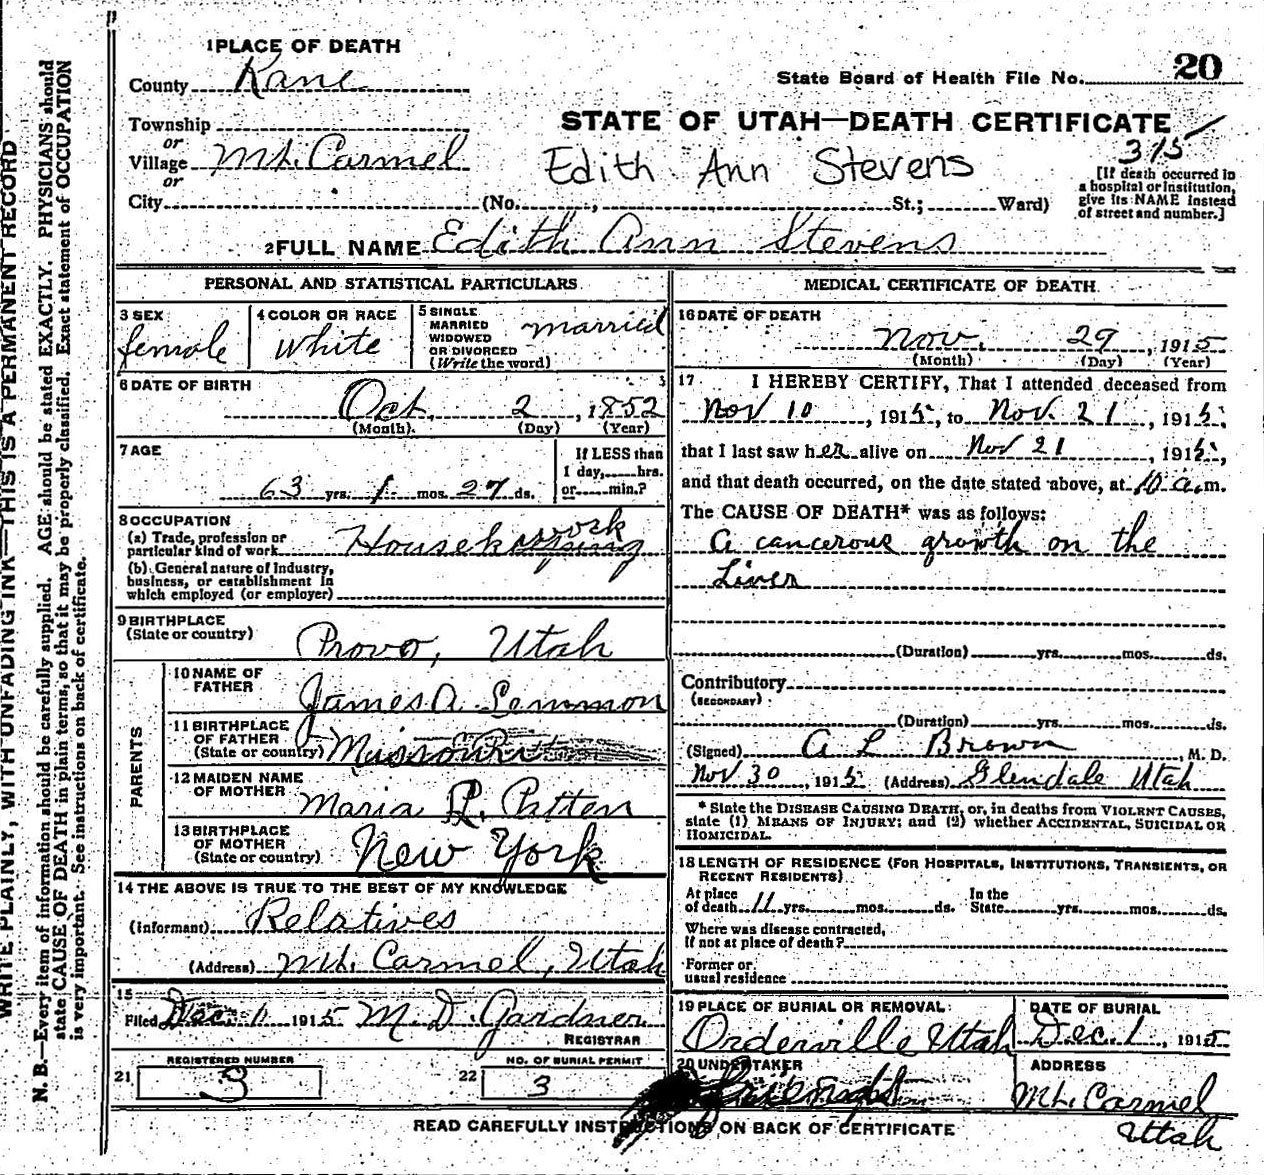 WRITE PLAINLY, WITH UNFADING INK—THIS IS A PERMANENT RECORD
N. B.—Every item of information should be carefully supplied. AGE should be stated EXACTLY. PHYSICIANS should
state CAUSE OF DEATH in plain terms, so that it may be properly classified. Exact statement of OCCUPATION
is very important. See instructions on back of certificate.
1 PLACE OF DEATH
County Kane
State Board of Health File No. 20
Township
or
Village Mt. Carmel
or
City (No. , St.; Ward)
STATE OF UTAH—DEATH CERTIFICATE
315
Edith Ann Stevens
[If death occurred in
a hospital or institution,
give its NAME instead
of street and number.]
2 FULL NAME Edith Ann Stevens
PERSONAL AND STATISTICAL PARTICULARS
3 SEX
female
4 COLOR OR RACE
white
5 SINGLE
MARRIED
WIDOWED
OR DIVORCED
(Write the word)
married
6 DATE OF BIRTH
Oct. 2, 1852
(Month) (Day) (Year)
7 AGE
63 yrs. 1 mos. 27 ds.
If LESS than
1 day, hrs.
or min.?
8 OCCUPATION
(a) Trade, profession or
particular kind of work Housework
(b) General nature of Industry,
business, or establishment in
which employed (or employer)
9 BIRTHPLACE
(State or country)
Provo, Utah
PARENTS
10 NAME OF
FATHER
James A. Lemmon
11 BIRTHPLACE
OF FATHER
(State or country) Missouri
12 MAIDEN NAME
OF MOTHER
Maria L. Patten
13 BIRTHPLACE
OF MOTHER
(State or country)
New York
14 THE ABOVE IS TRUE TO THE BEST OF MY KNOWLEDGE
(Informant) Relatives
(Address) Mt. Carmel, Utah
15
Filed Dec. 1 1915 M. D. Gardner
REGISTRAR
21 REGISTERED NUMBER
3
22 NO. OF BURIAL PERMIT
3
MEDICAL CERTIFICATE OF DEATH
16 DATE OF DEATH
Nov. 29, 1915
(Month) (Day) (Year)
17 I HEREBY CERTIFY, That I attended deceased from
Nov 10, 1915, to Nov. 21, 1915,
that I last saw her alive on Nov 21, 1915,
and that death occurred, on the date stated above, at 10 a.m.
The CAUSE OF DEATH* was as follows:
A cancerous growth on the
Liver
(Duration) yrs. mos. ds.
Contributory
(SECONDARY)
(Duration) yrs. mos. ds.
(Signed) A L Brown, M. D.
Nov 30, 1915 (Address) Glendale Utah
* State the DISEASE CAUSING DEATH, or, in deaths from VIOLENT CAUSES,
state (1) MEANS OF INJURY; and (2) whether ACCIDENTAL, SUICIDAL OR
HOMICIDAL.
18 LENGTH OF RESIDENCE (FOR HOSPITALS, INSTITUTIONS, TRANSIENTS, OR
RECENT RESIDENTS)
At place
of death 11 yrs. mos. ds.
In the
State yrs. mos. ds.
Where was disease contracted,
If not at place of death?
Former or
usual residence
19 PLACE OF BURIAL OR REMOVAL
Orderville Utah
DATE OF BURIAL
Dec. 1, 1915
20 UNDERTAKER
ADDRESS
Mt. Carmel
Utah
READ CAREFULLY INSTRUCTIONS ON BACK OF CERTIFICATE